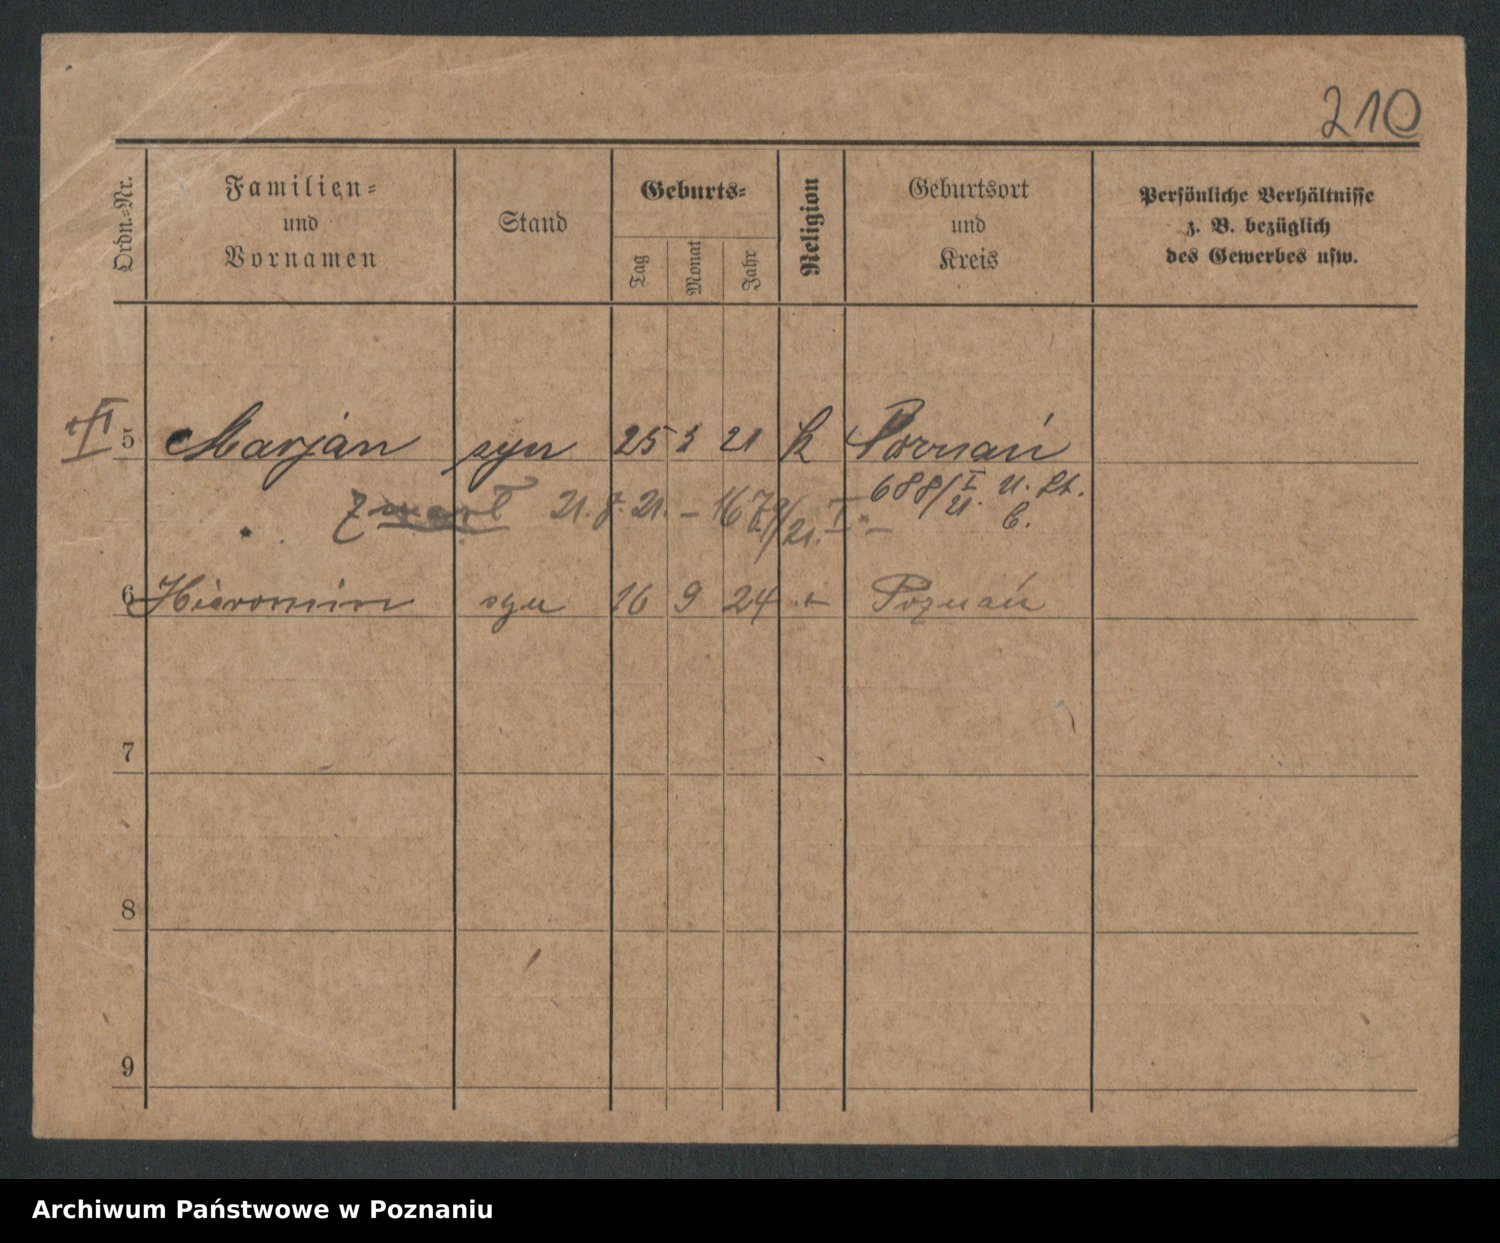 210
Ordn.=Nr.
Familien=
und
Vornamen
Stand
Geburts=
Tag
Monat
Jahr
Religion
Geburtsort
und
Kreis
Persönliche Verhältnisse
z. B. bezüglich
des Gewerbes usw.
5 Marjan syn 25 3 21 k Poznań
688/I U. St.
21. b.
Zmarł 21. 8. 21. –
6 Hieronim syn 16 9 24 Poznań
7
8
9
Archiwum Państwowe w Poznaniu